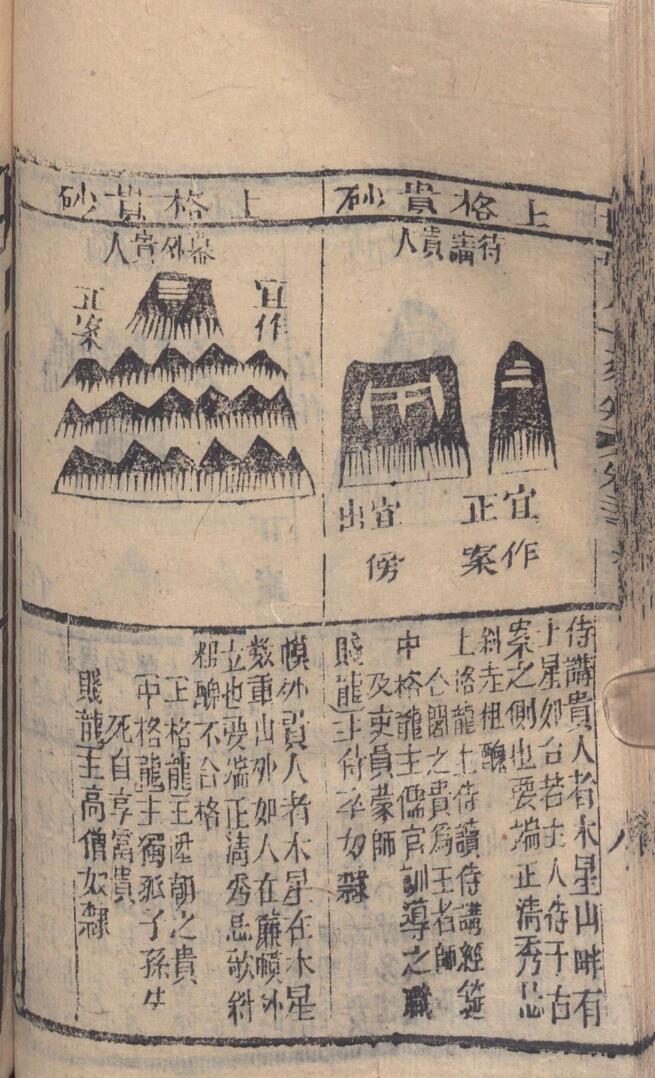 上格貴砂
侍講貴人
宜作
正案
宜傍
出
侍講貴人者木星山畔有
土星如台若主人侍于古
案之側也要端正清秀忌
斜走粗醜
上格龍主侍讀侍講經筵
台閣之貴為王者師
中格龍主儒官訓導之職
及吏員蒙師
賤龍主侍卒奴隸
上格貴砂
幕外貴人
宜作
正案
幙外貴人者木星在水星
数重山外如人在簾幙外
立也要端正清秀忌欹斜
粗醜不合格
上格龍主陞朝之貴
中格龍主獨孤子孫生
死自享富貴
賤龍主高僧奴隸
八